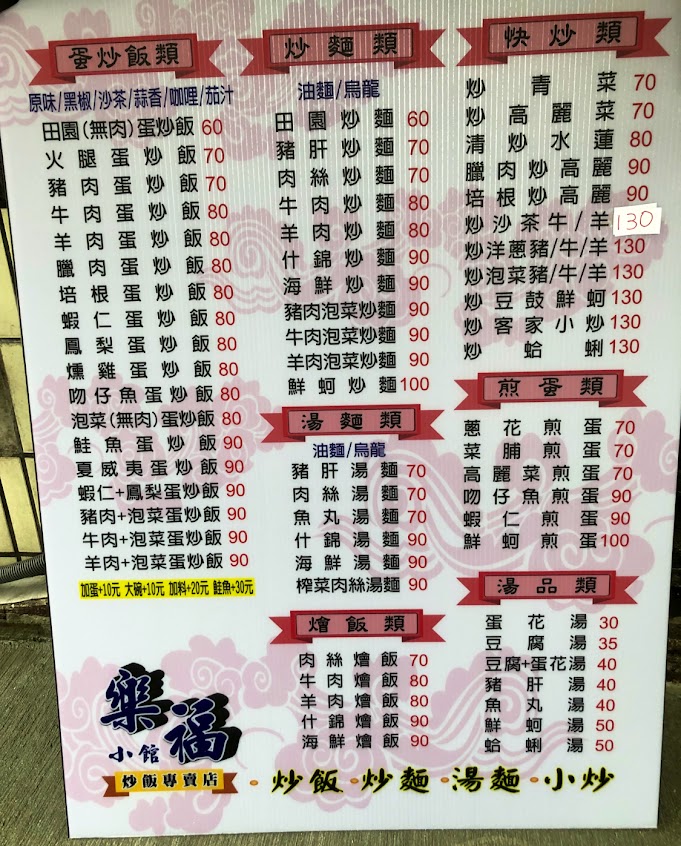 蛋炒飯類
原味/黑椒/沙茶/蒜香/咖哩/茄汁
田園(無肉)蛋炒飯 60
火腿蛋炒飯 70
豬肉蛋炒飯 70
牛肉蛋炒飯 80
羊肉蛋炒飯 80
臘肉蛋炒飯 80
培根蛋炒飯 80
蝦仁蛋炒飯 80
鳳梨蛋炒飯 80
燻雞蛋炒飯 80
吻仔魚蛋炒飯 80
泡菜(無肉)蛋炒飯 80
鮭魚蛋炒飯 90
夏威夷蛋炒飯 90
蝦仁+鳳梨蛋炒飯 90
豬肉+泡菜蛋炒飯 90
牛肉+泡菜蛋炒飯 90
羊肉+泡菜蛋炒飯 90
加蛋+10元 大碗+10元 加料+20元 鮭魚+30元
炒麵類
油麵/烏龍
田園炒麵 60
豬肝炒麵 70
肉絲炒麵 70
牛肉炒麵 80
羊肉炒麵 80
什錦炒麵 90
海鮮炒麵 90
豬肉泡菜炒麵 90
牛肉泡菜炒麵 90
羊肉泡菜炒麵 90
鮮蚵炒麵 100
湯麵類
油麵/烏龍
豬肝湯麵 70
肉絲湯麵 70
魚丸湯麵 70
什錦湯麵 90
海鮮湯麵 90
榨菜肉絲湯麵 90
燴飯類
肉絲燴飯 70
牛肉燴飯 80
羊肉燴飯 80
什錦燴飯 90
海鮮燴飯 90
快炒類
炒青菜 70
炒高麗菜 70
清炒水蓮 80
臘肉炒高麗 90
培根炒高麗 90
炒沙茶牛/羊 130
炒洋蔥豬/牛/羊 130
炒泡菜豬/牛/羊 130
炒豆鼓鮮蚵 130
炒客家小炒 130
炒蛤蜊 130
煎蛋類
蔥花煎蛋 70
菜脯煎蛋 70
高麗菜煎蛋 70
吻仔魚煎蛋 90
蝦仁煎蛋 90
鮮蚵煎蛋 100
湯品類
蛋花湯 30
豆腐湯 35
豆腐+蛋花湯 40
豬肝湯 40
魚丸湯 40
鮮蚵湯 50
蛤蜊湯 50
樂福
小館
炒飯專賣店
·炒飯·炒麵·湯麵·小炒